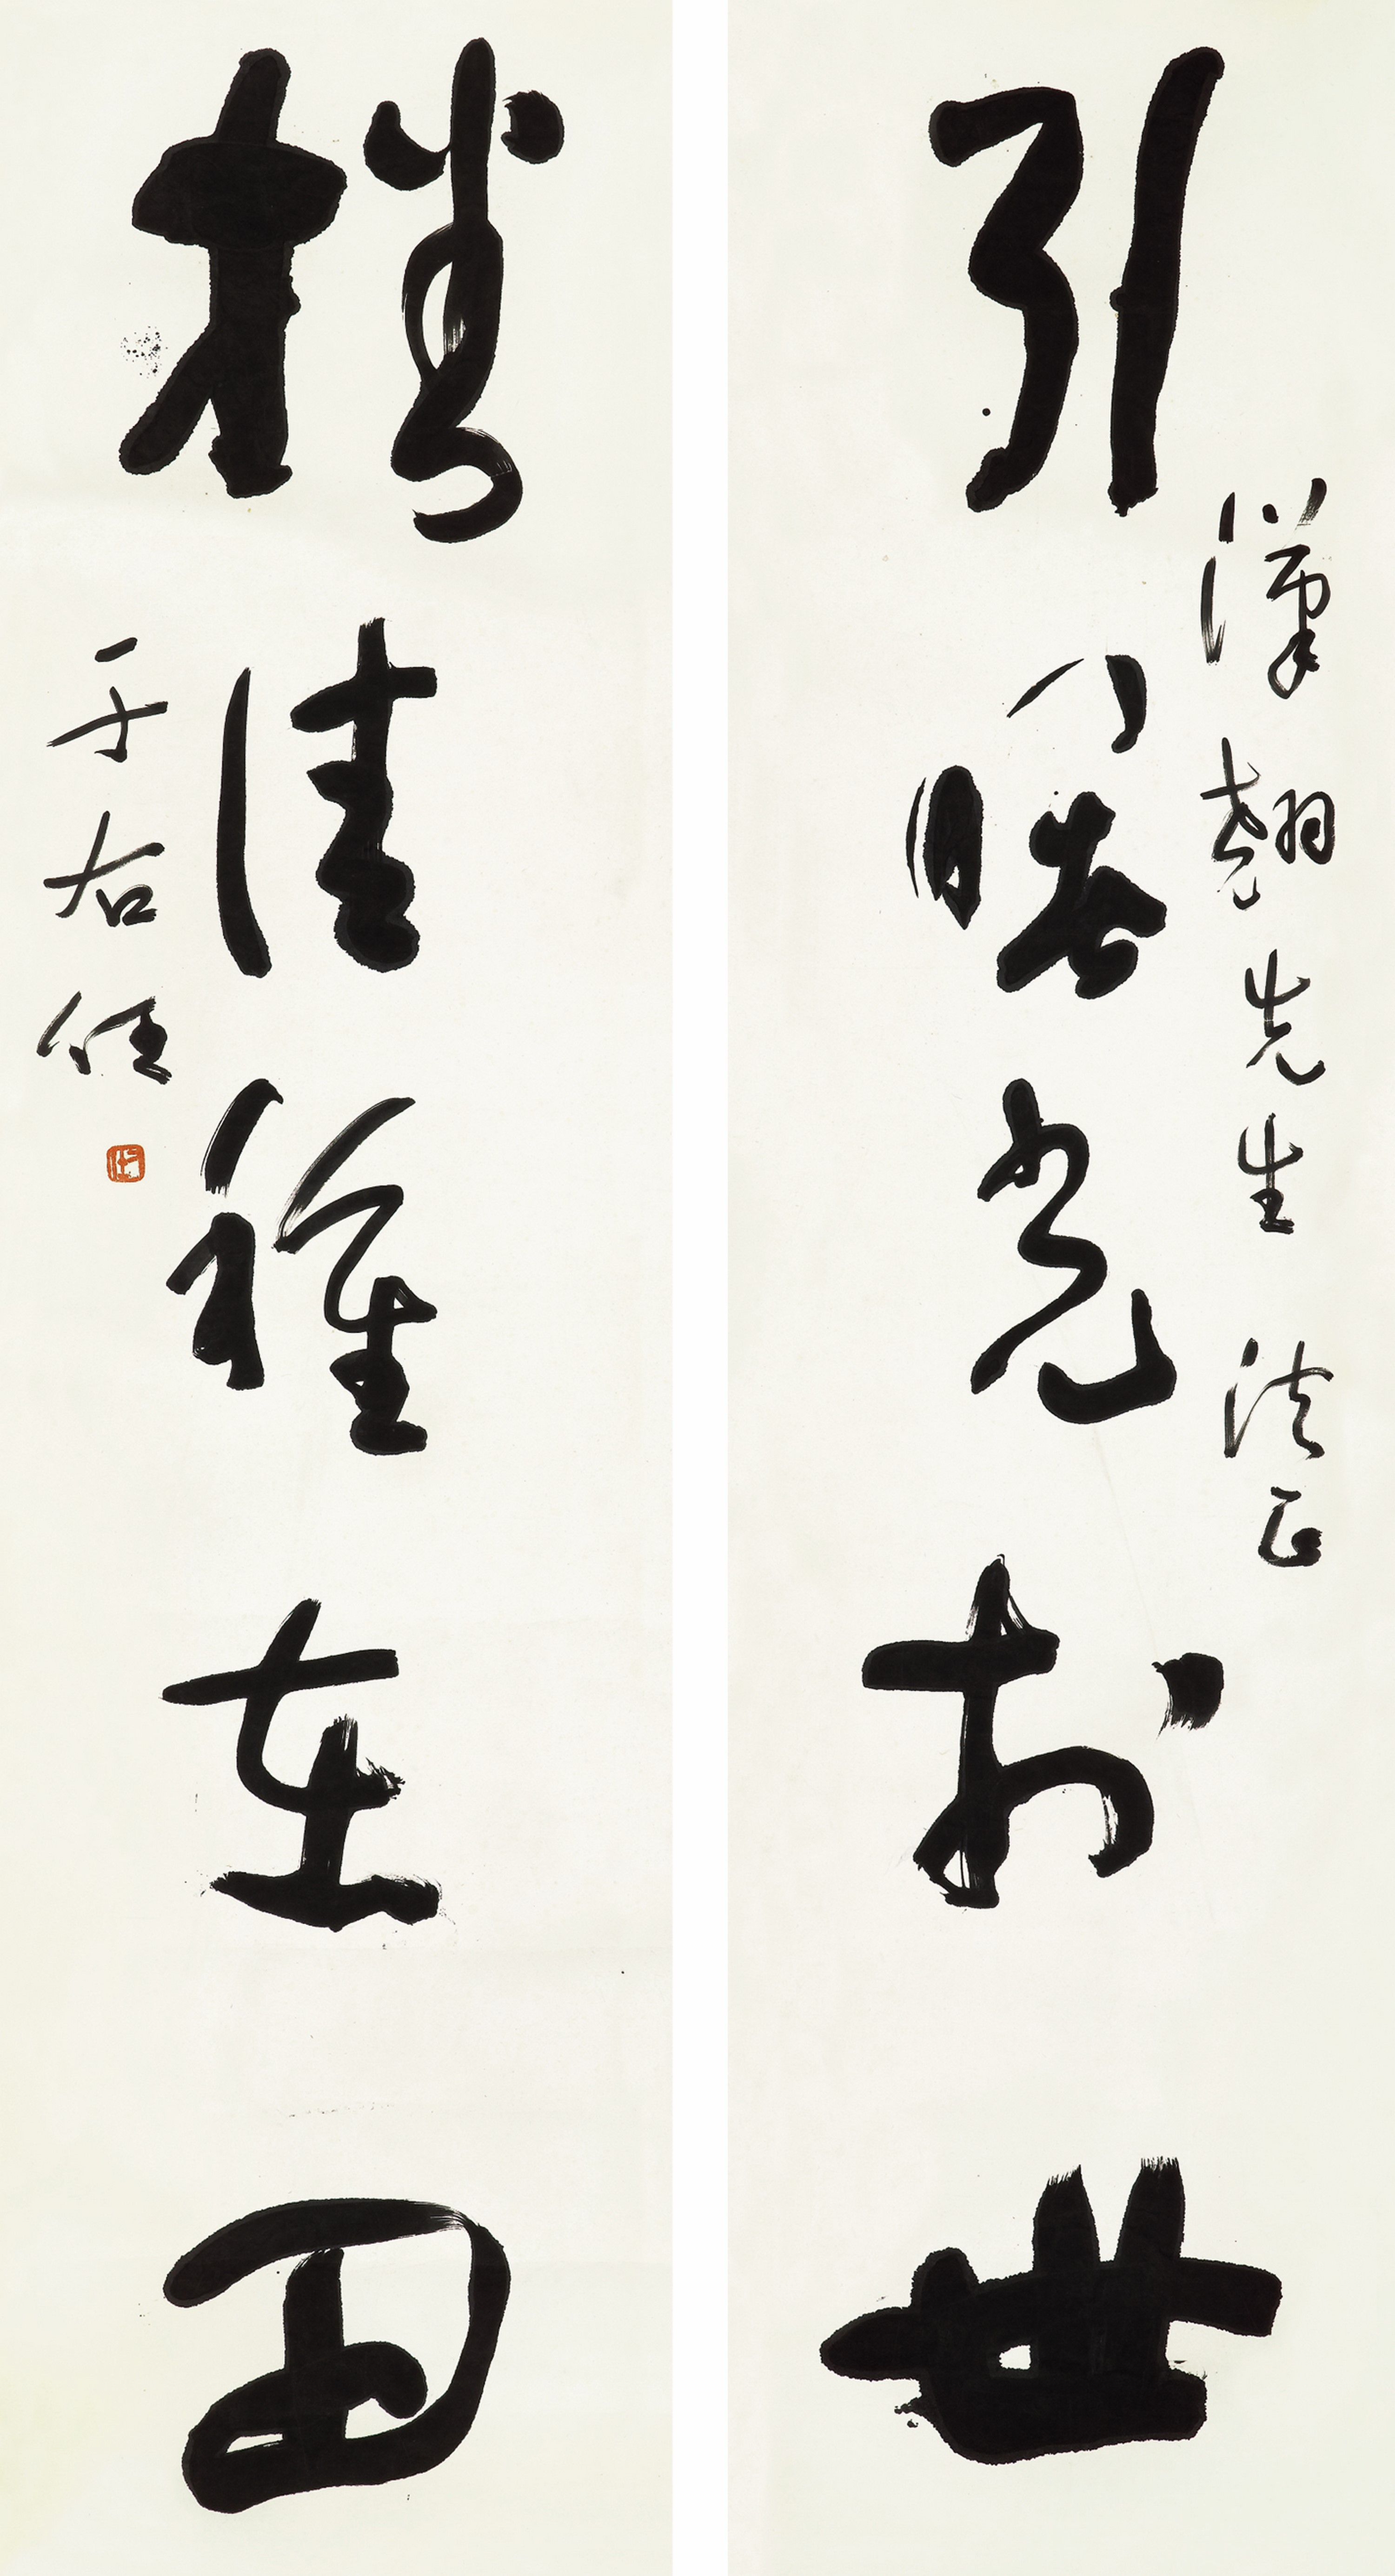 引曙光於世
漢翹先生 法正
播佳種在田
于右任